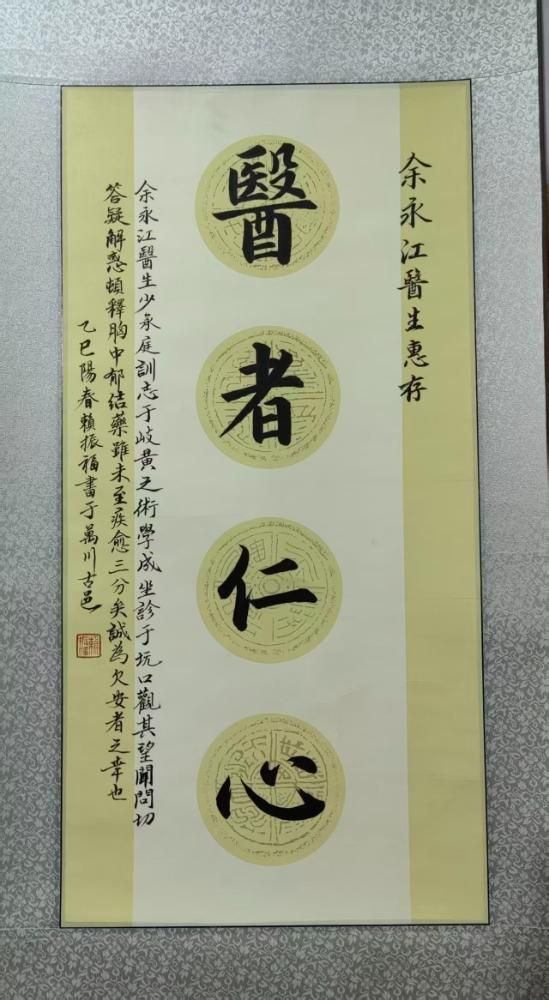 余永江醫生惠存
醫者仁心
余永江醫生少承庭訓志于岐黄之術學成坐診于坑口觀其望聞問切
答疑解惑頓釋胸中郁结藥雖未至疾愈三分矣誠為欠安者之幸也
乙巳陽春賴振福書于萬川古邑